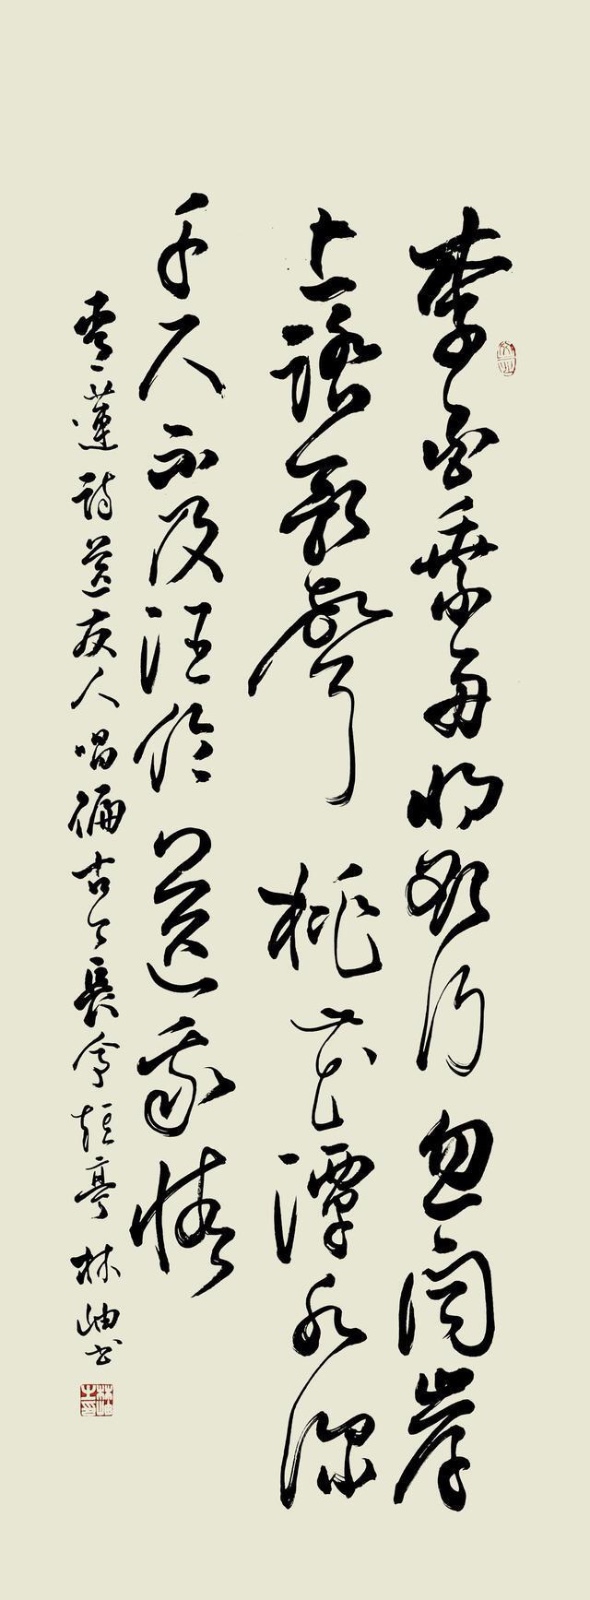 李白乘舟将欲行忽闻岸
上踏歌声桃花潭水深
千尺不及汪伦送我情
青莲诗送友人唱遍古今长亭短亭林岫书